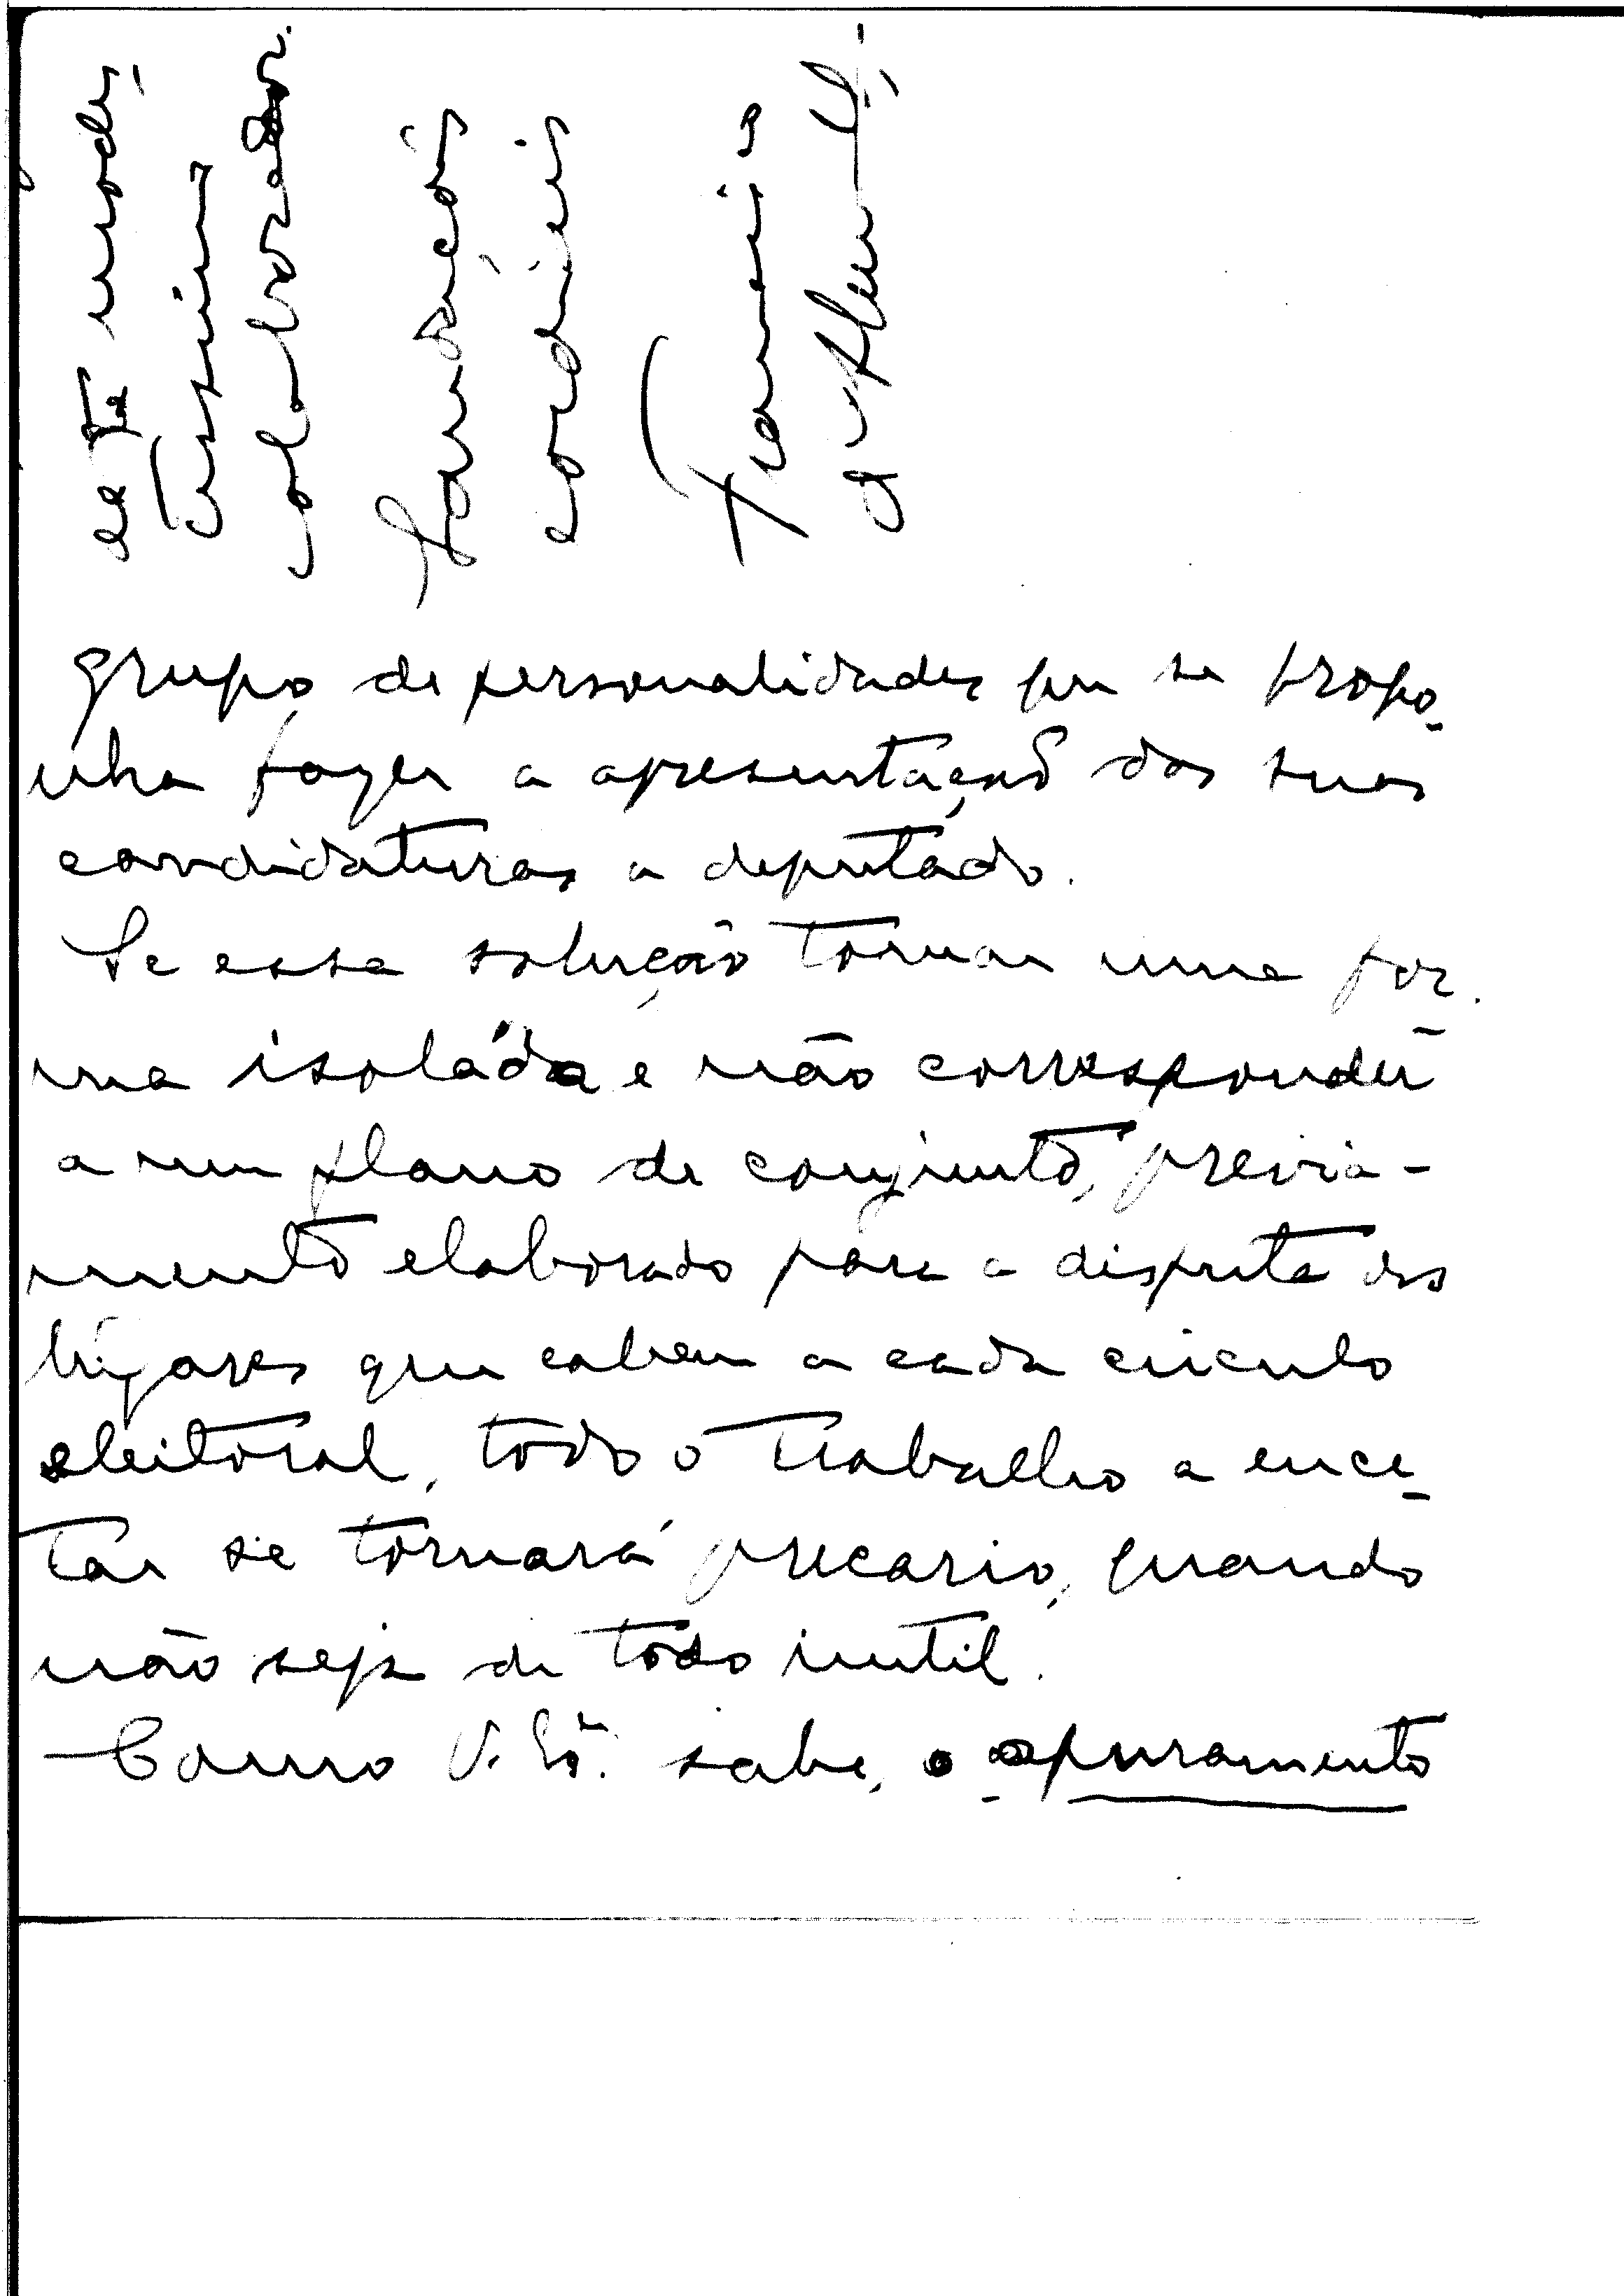 grupo de personalidades que se propo-
nha fazer a apresentação das suas
candidaturas a deputado.
Se essa solução tomar uma for-
ma isolada e não corresponder
a um plano de conjunto, previa-
mente elaborado para a disputa dos
lugares que cabem a cada circulo
eleitoral, todo o trabalho a ence-
tar se tornará precario, quando
não seja de todo inutil.
Como V. Exª. sabe, o apuramento
deste modes-
tissimo
colaborador.
Saudações
cordiais